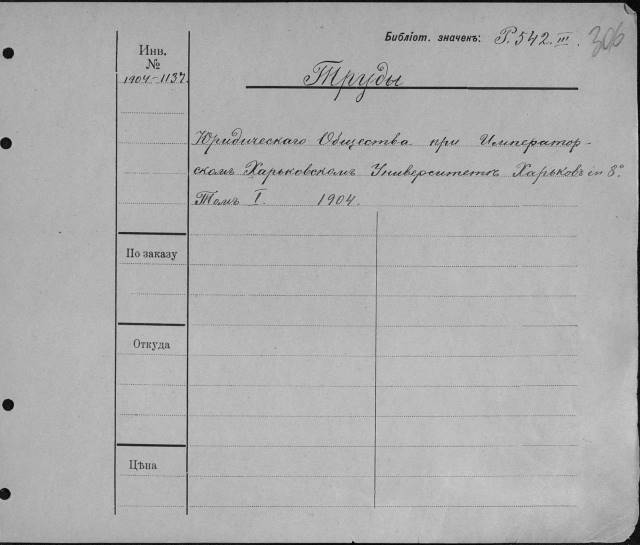 Библіот. значекъ: P. 542. III. 306
Инв.
№
1904-1137.
Труды
Юридическаго Общества при Император-
скомъ Харьковскомъ Университетѣ Харьковъ in 8º.
Томъ I. 1904.
По заказу
Откуда
Цѣна